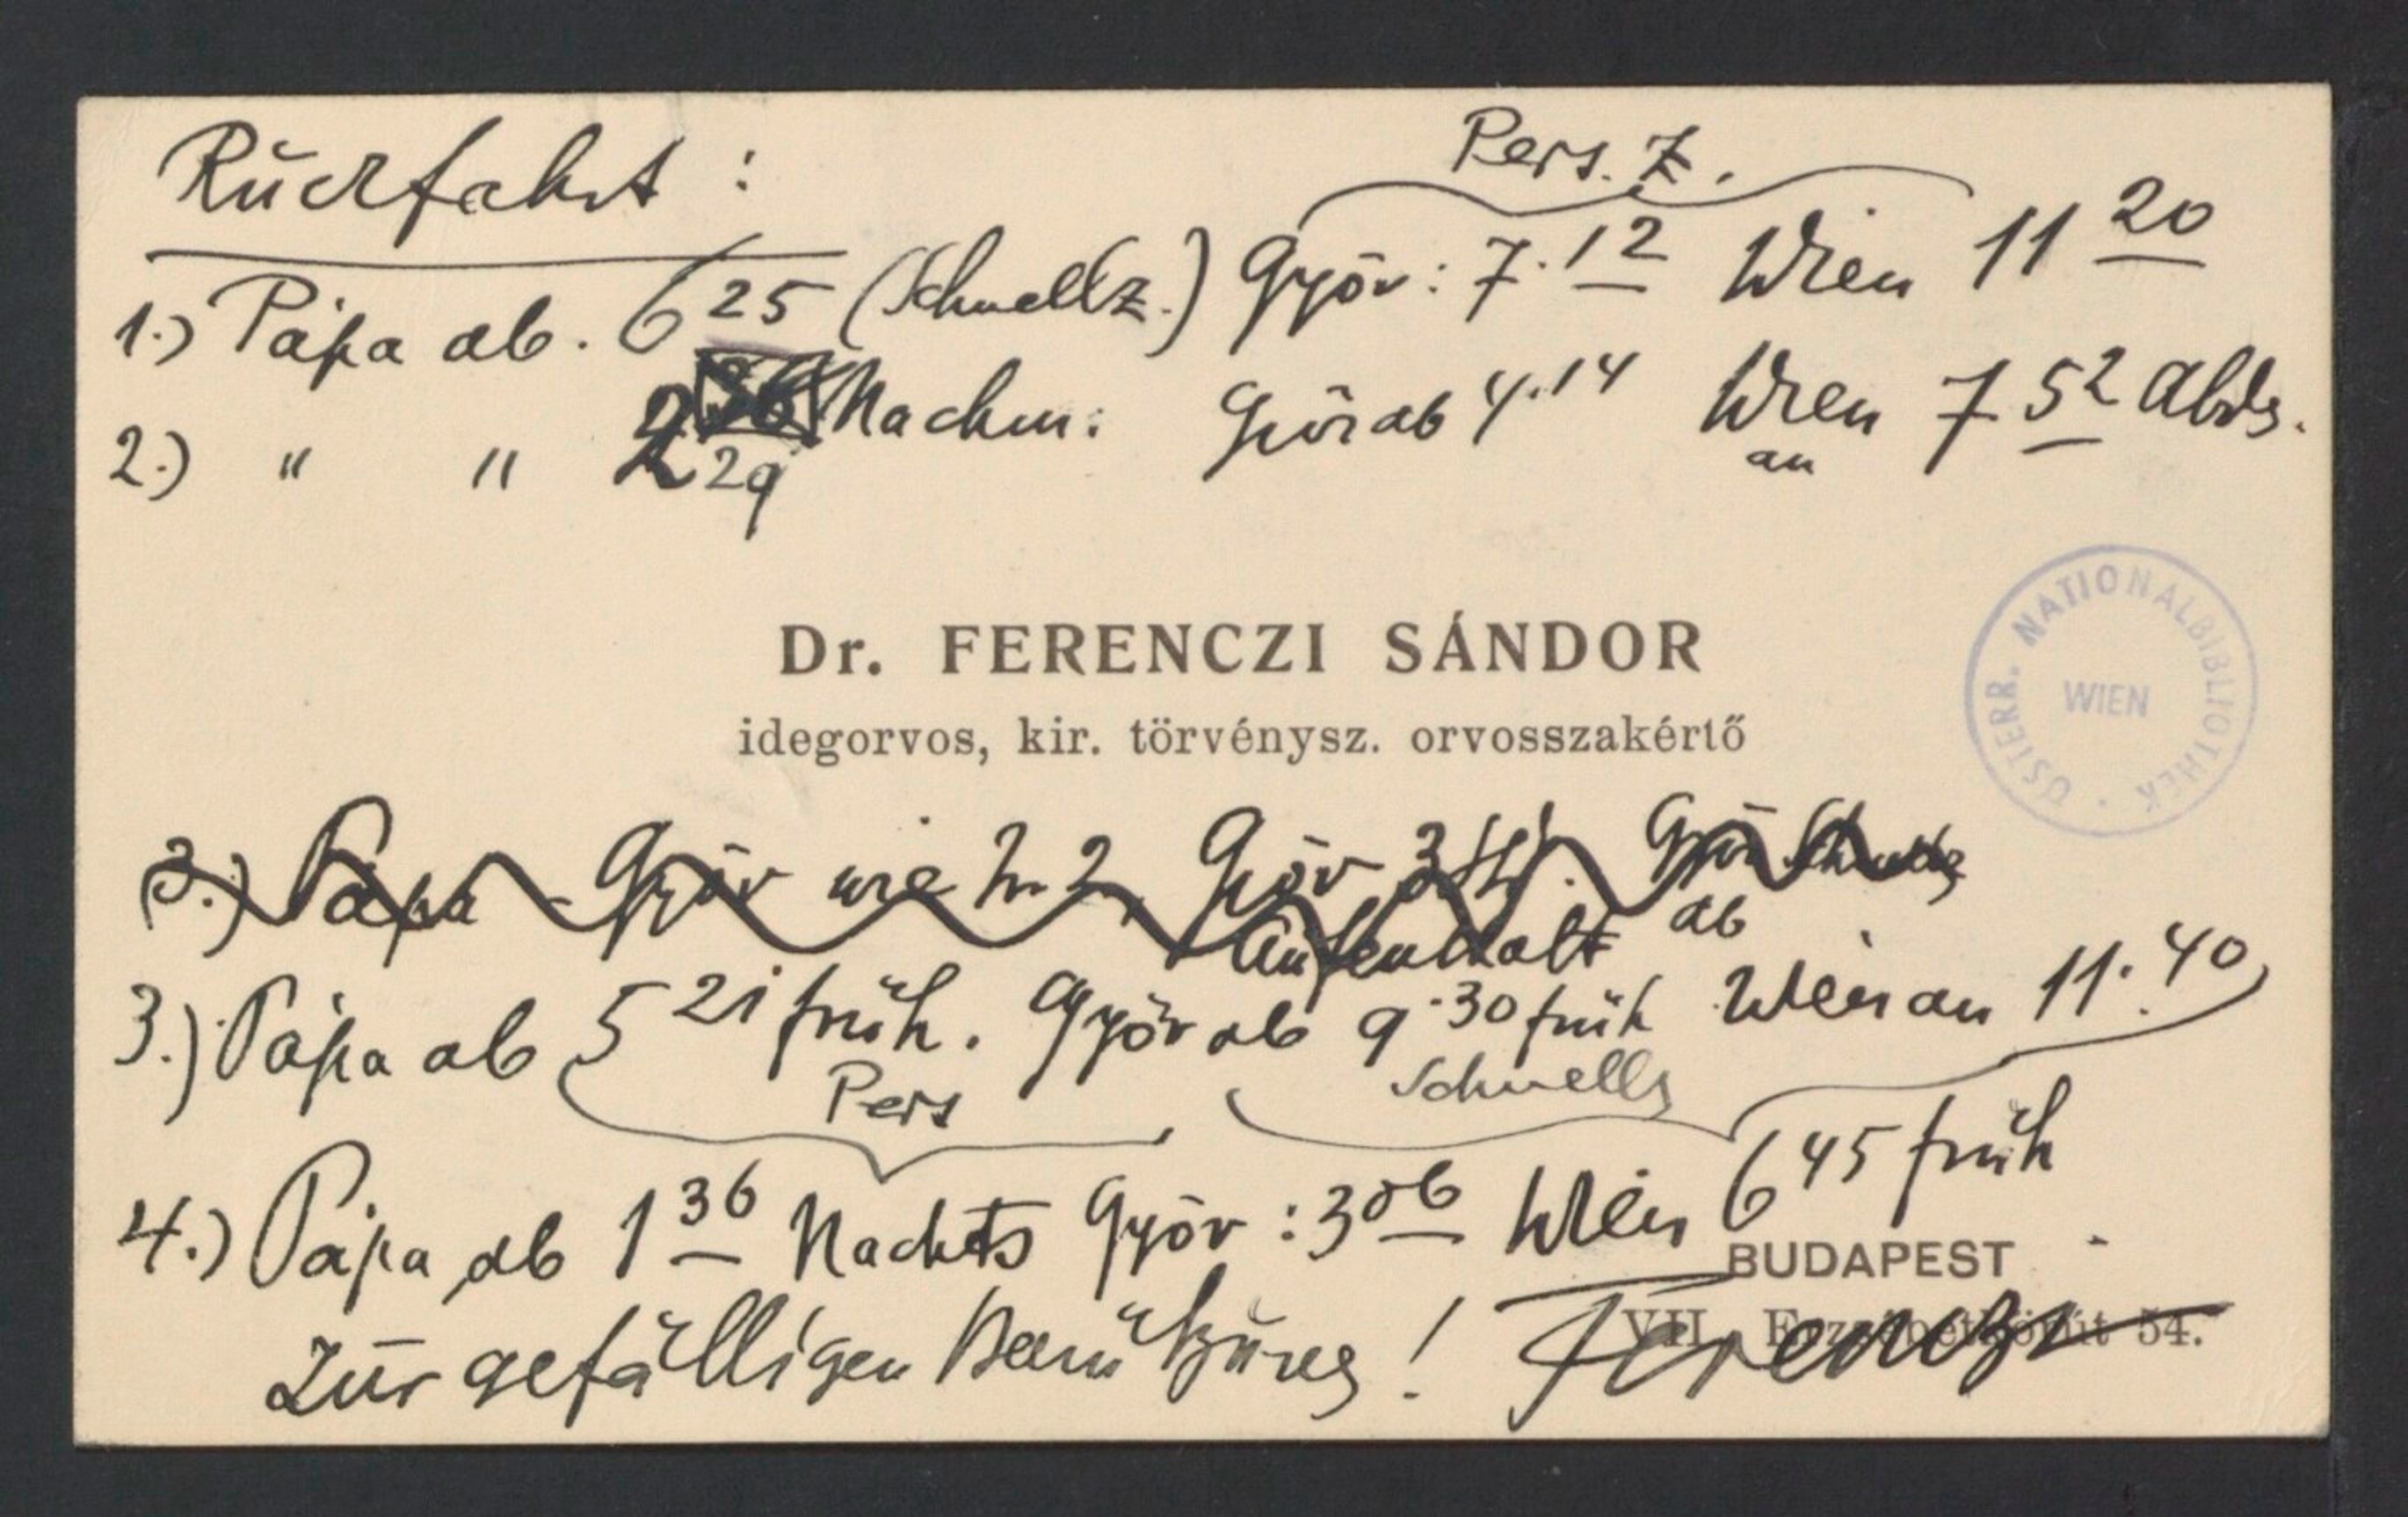 Rückfahrt :
Pers. Z.
1.) Pápa ab. 6 25 (Schnellz.) Győr : 7.12 Wien 11 20
2.) " " 2 29 Nachm: Győr ab 4.14 Wien an 7 52 Abds.
Dr. FERENCZI SÁNDOR
idegorvos, kir. törvénysz. orvosszakértő
ÖSTERR. NATIONALBIBLIOTHEK · WIEN
3.) Pápa - Győr wie N. 2. Győr Győr
Aufenthalt ab
3.) Pápa ab 5 21 früh. Győr ab 9.30 früh Wien an 11.40
Pers Schnellz
4.) Pápa ab 1 36 Nachts Győr : 3 06 Wien 6 45 früh
BUDAPEST
VII. Erzsébet-körút 54.
Zur gefälligen Benützung! Ferenczi